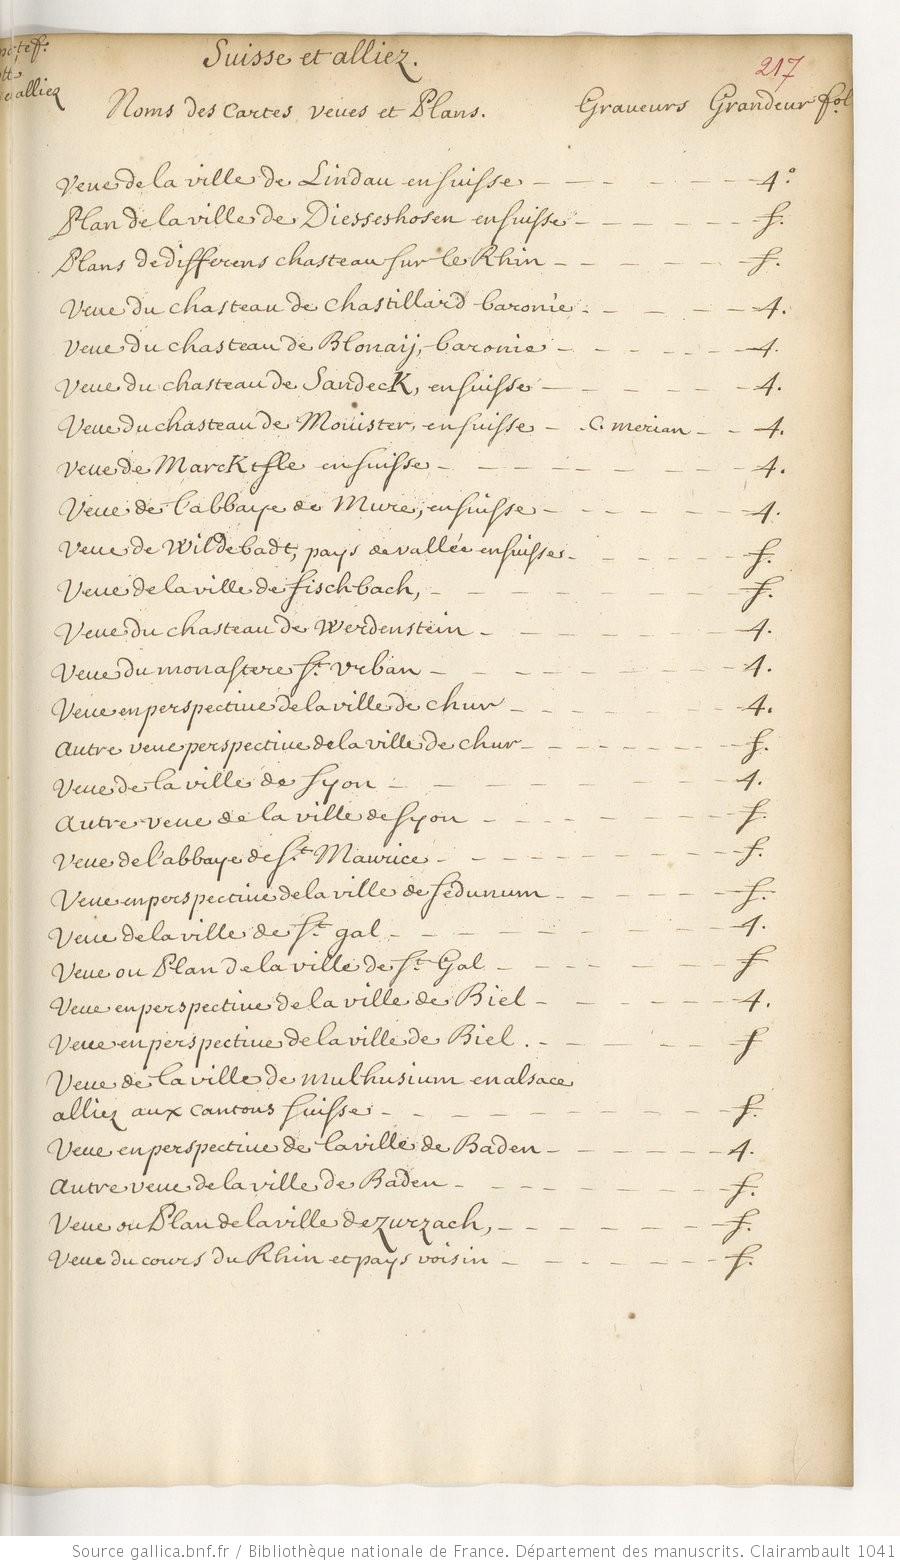 Suisse et alliez.
217
alliez
Noms des Cartes veues et Plans. Graueurs Grandeur fol
Veue de la ville de Lindau en suisse 4°
Plan de la ville de Diesseshosen en suisse f.
Plans de differens chasteau sur le Rhin f.
Veue du chasteau de chastillard baronie 4.
Veue du chasteau de Blonaij, baronie 4.
Veue du chasteau de Sandeck, en suisse 4.
Veue du chasteau de Mouister, en suisse C. merian 4.
Veue de Marcktfle en suisse 4.
Veue de l'abbaye de Mure, en suisse 4.
Veue de Wildebadt, pays de vallée en suisse f.
Veue de la ville de fischbach, f.
Veue du chasteau de Werdenstein 4.
Veue du monastere St. Urban 4.
Veue en perspectiue de la ville de chur 4.
Autre veue perspectiue de la ville de chur f.
Veue de la ville de Syon 4.
Autre veue de la ville de Syon f.
Veue de l'abbaye de St. Maurice f.
Veue en perspectiue de la ville de Sedunum f.
Veue de la ville de St. gal 4.
Veue ou Plan de la ville de St. Gal f
Veue en perspectiue de la ville de Biel 4.
Veue en perspectiue de la ville de Biel. f
Veue de la ville de mulhusium en alsace
alliez aux cantons suisse f.
Veue en perspectiue de la ville de Baden 4.
Autre veue de la ville de Baden f.
Veue ou Plan de la ville de zurzach, f.
Veue du cours du Rhin et pays voisin f.
Source gallica.bnf.fr / Bibliothèque nationale de France. Département des manuscrits. Clairambault 1041